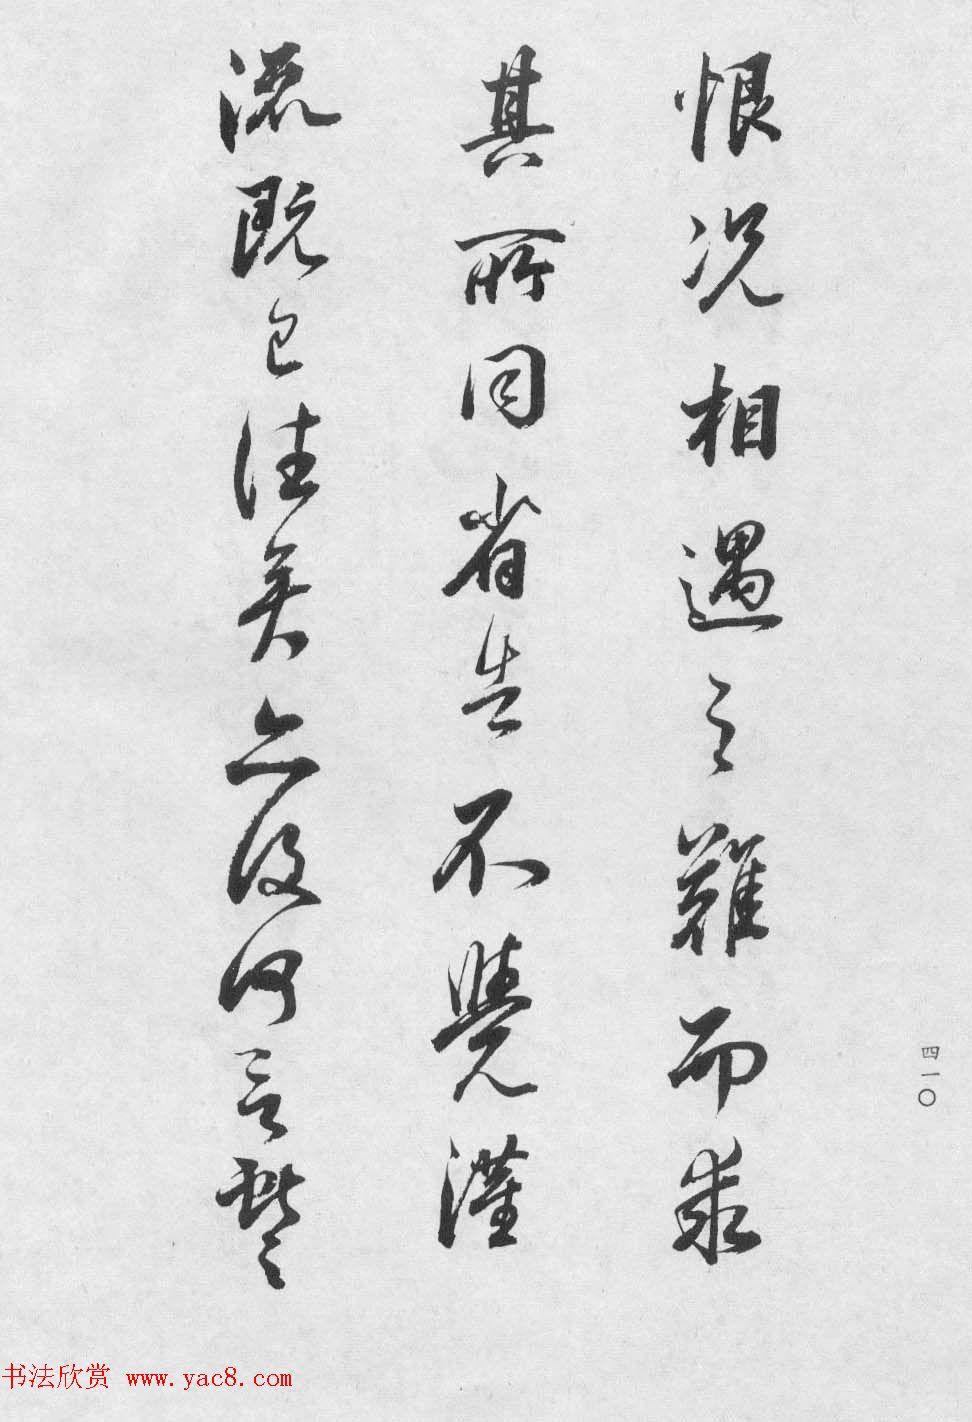 恨况相遇之難而求
其所同省告不覺濸
流既已往矣亦復何言獻之
四一〇
书法欣赏 www.yac8.com